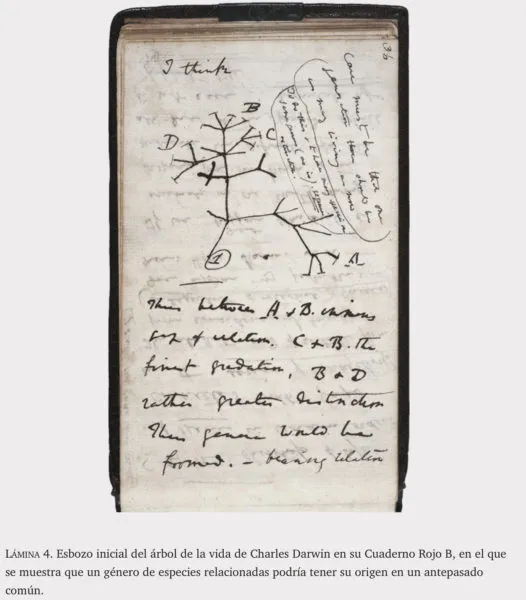 36
I think
Case must be that one
generation then should be
as many living as now
To do this & to have many species in
same genus (as is) requires
extinction.
B
C
D
A
1
Thus between A & B. immens
gap of relation. C & B. the
finest gradation, B & D
rather greater distinction
Thus genera would be
formed. — bearing relation
LÁMINA 4. Esbozo inicial del árbol de la vida de Charles Darwin en su Cuaderno Rojo B, en el que
se muestra que un género de especies relacionadas podría tener su origen en un antepasado
común.